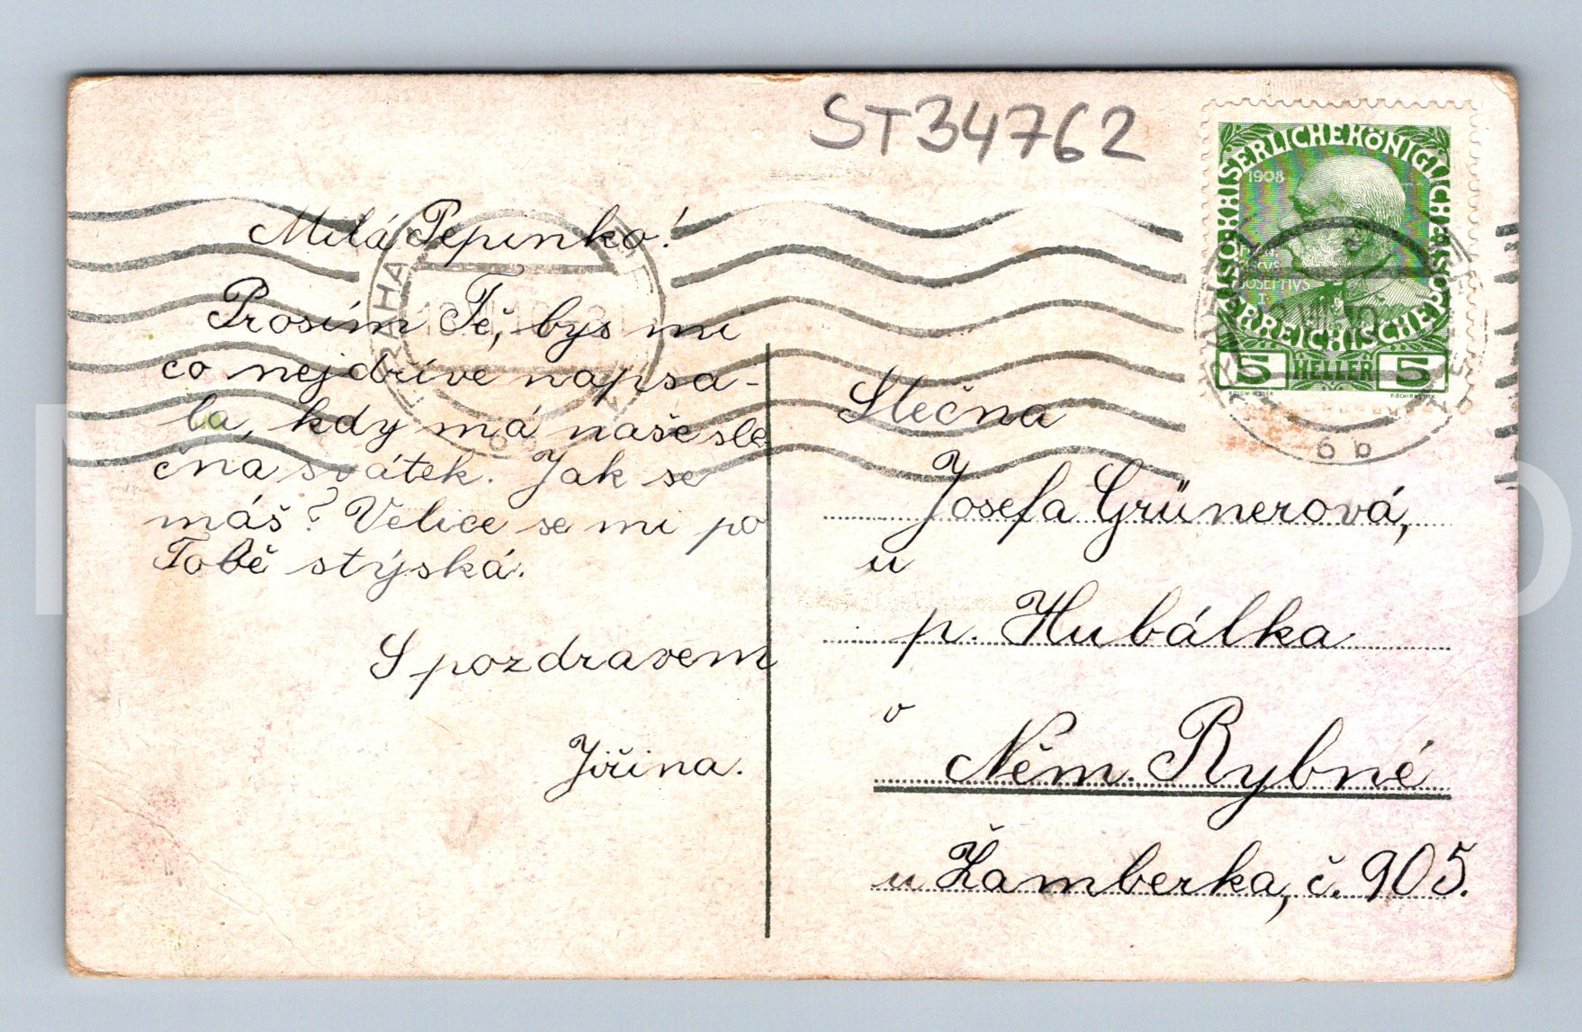 ST34762
KAISERLICHEKÖNIGLICHE
ÖSTERREICHISCHE POST
1908
JOSEPHVS
I
5 HELLER 5
PRAHA
6b
Milá Pepinko!
Prosím Tě, bys mi
co nejdříve napsa-
la, kdy má naše sle
čna svátek. Jak se
máš? Velice se mi po
Tobě stýská.
S pozdravem
Jiřina.
Slečna
Josefa Grünerová,
u
p. Hubálka
v
Něm. Rybné
u Žamberka, č. 905.